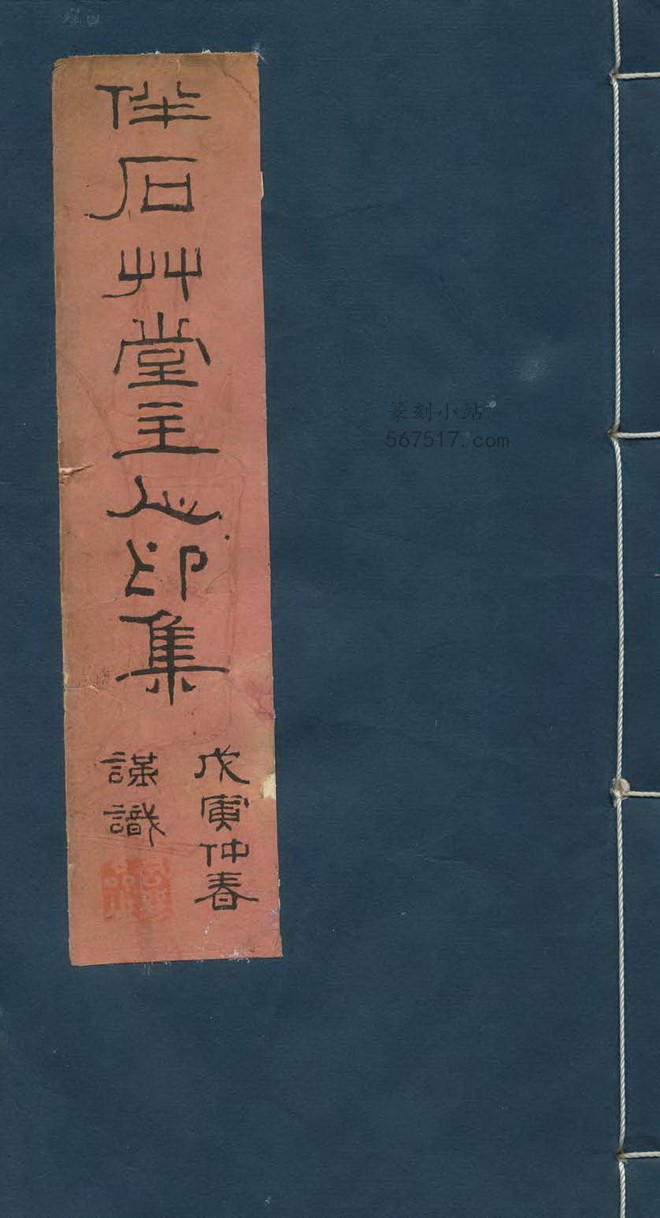 伴石艸堂主之印集
戊寅仲春
謹識
篆刻小站
567517.com